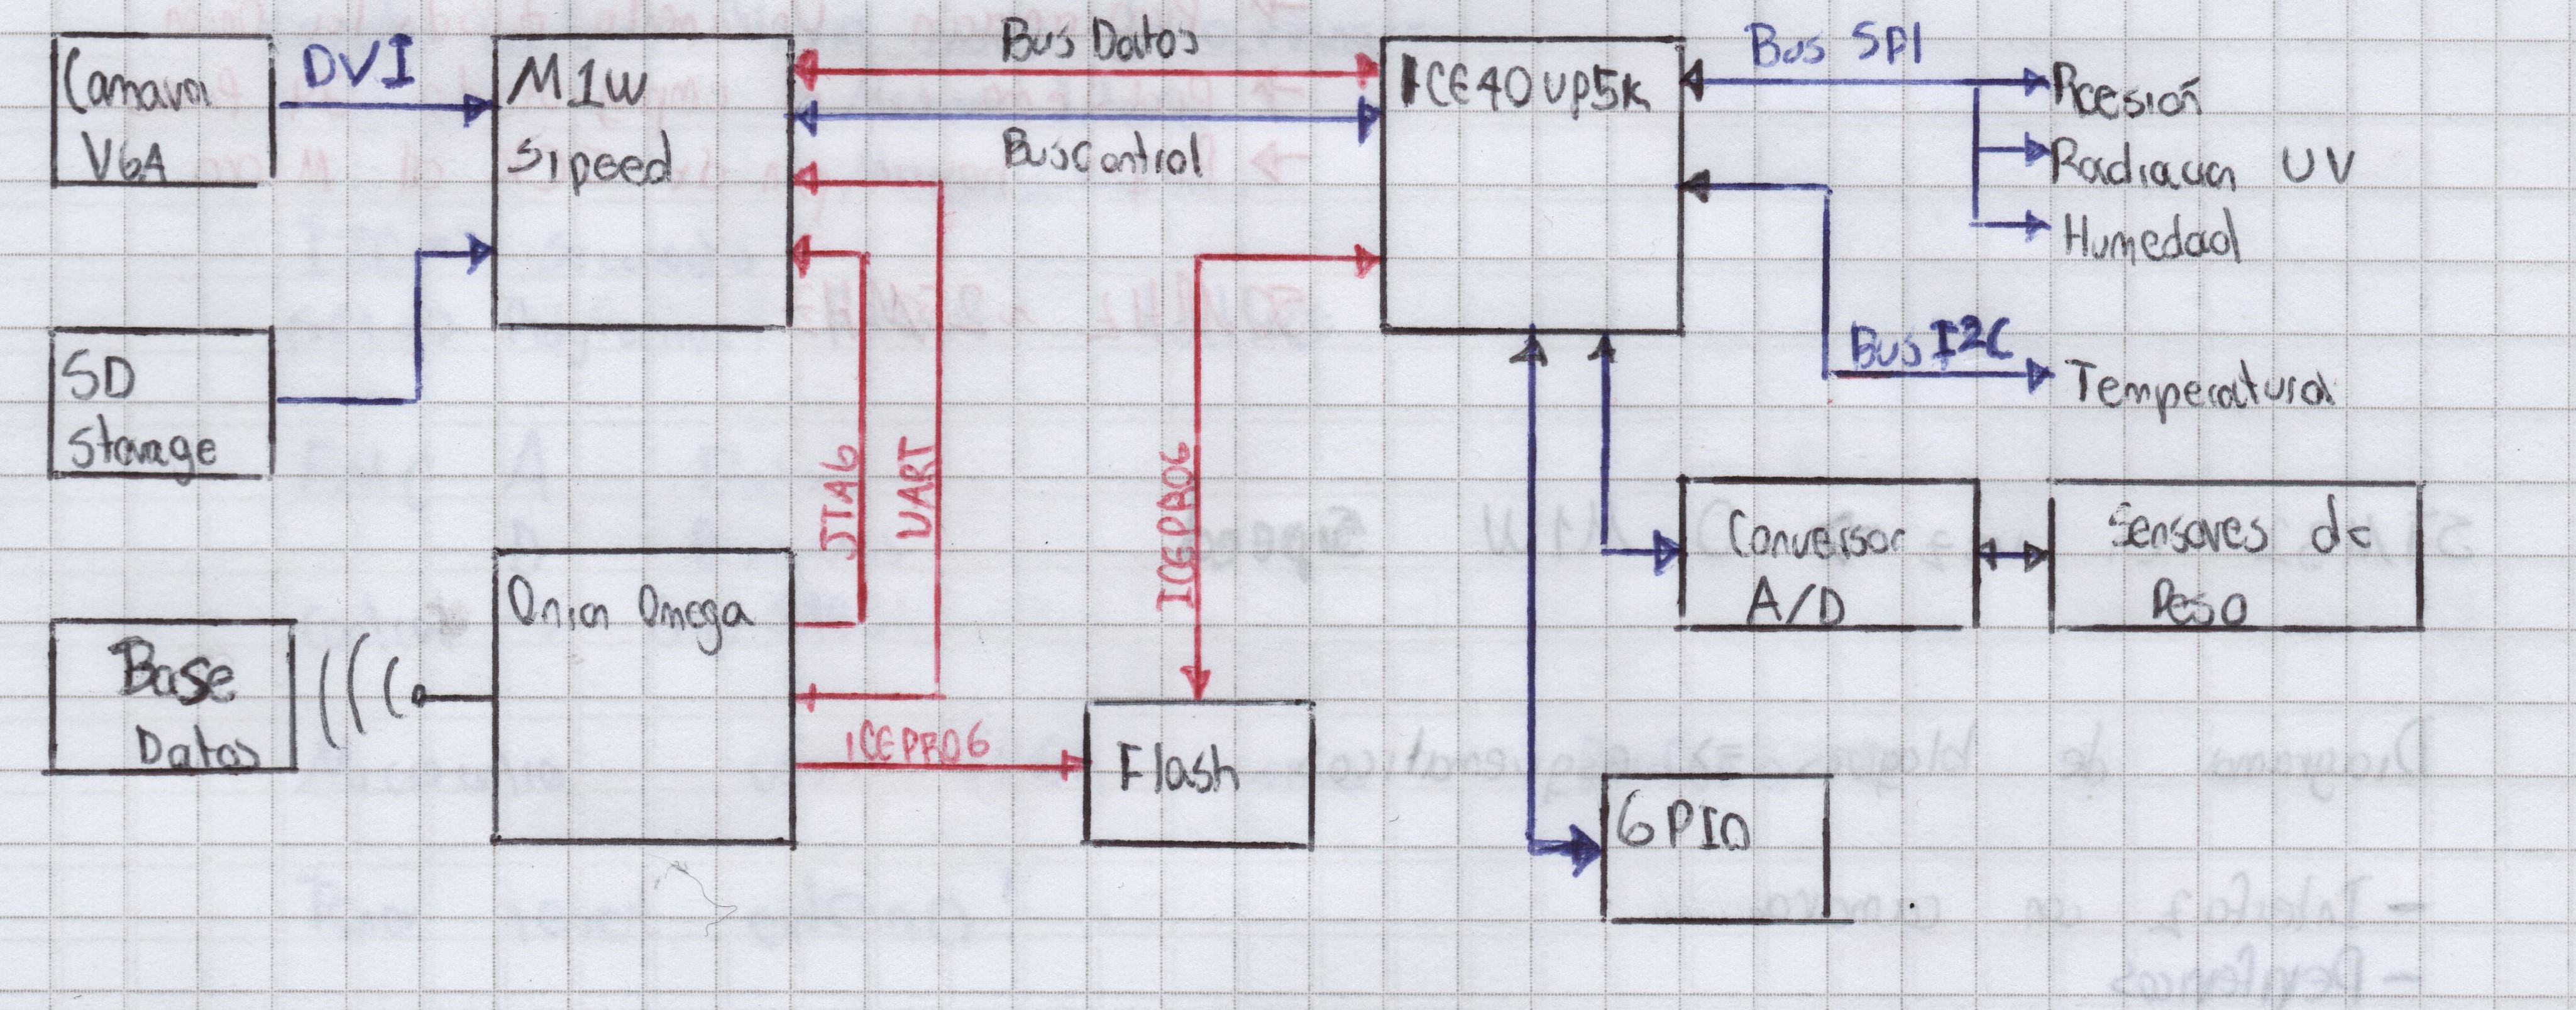 Camara
VGA
DVI
M1W
Sipeed
Bus Datos
Bus Control
ICE40UP5K
Bus SPI
Presión
Radiacion UV
Humedad
Bus I2C
Temperatura
SD
Storage
JTAG
UART
ICEPROG
Conversor
A/D
Sensores de
Peso
Base
Datos
Onion Omega
ICEPROG
Flash
GPIO